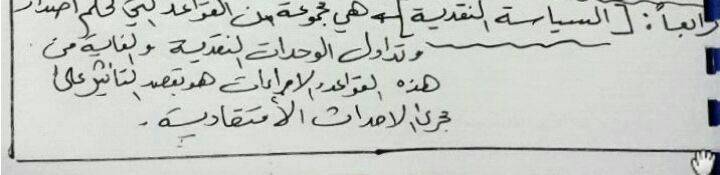 رابعاً: [السياسة النقدية] ← هي مجموعة من القواعد التي تحكم اصدار
وتداول الوحدات النقدية والغاية من
هذه القواعد والاجراءات هو بقصد التأثير على
مجرى الاحداث الأقتصادية.